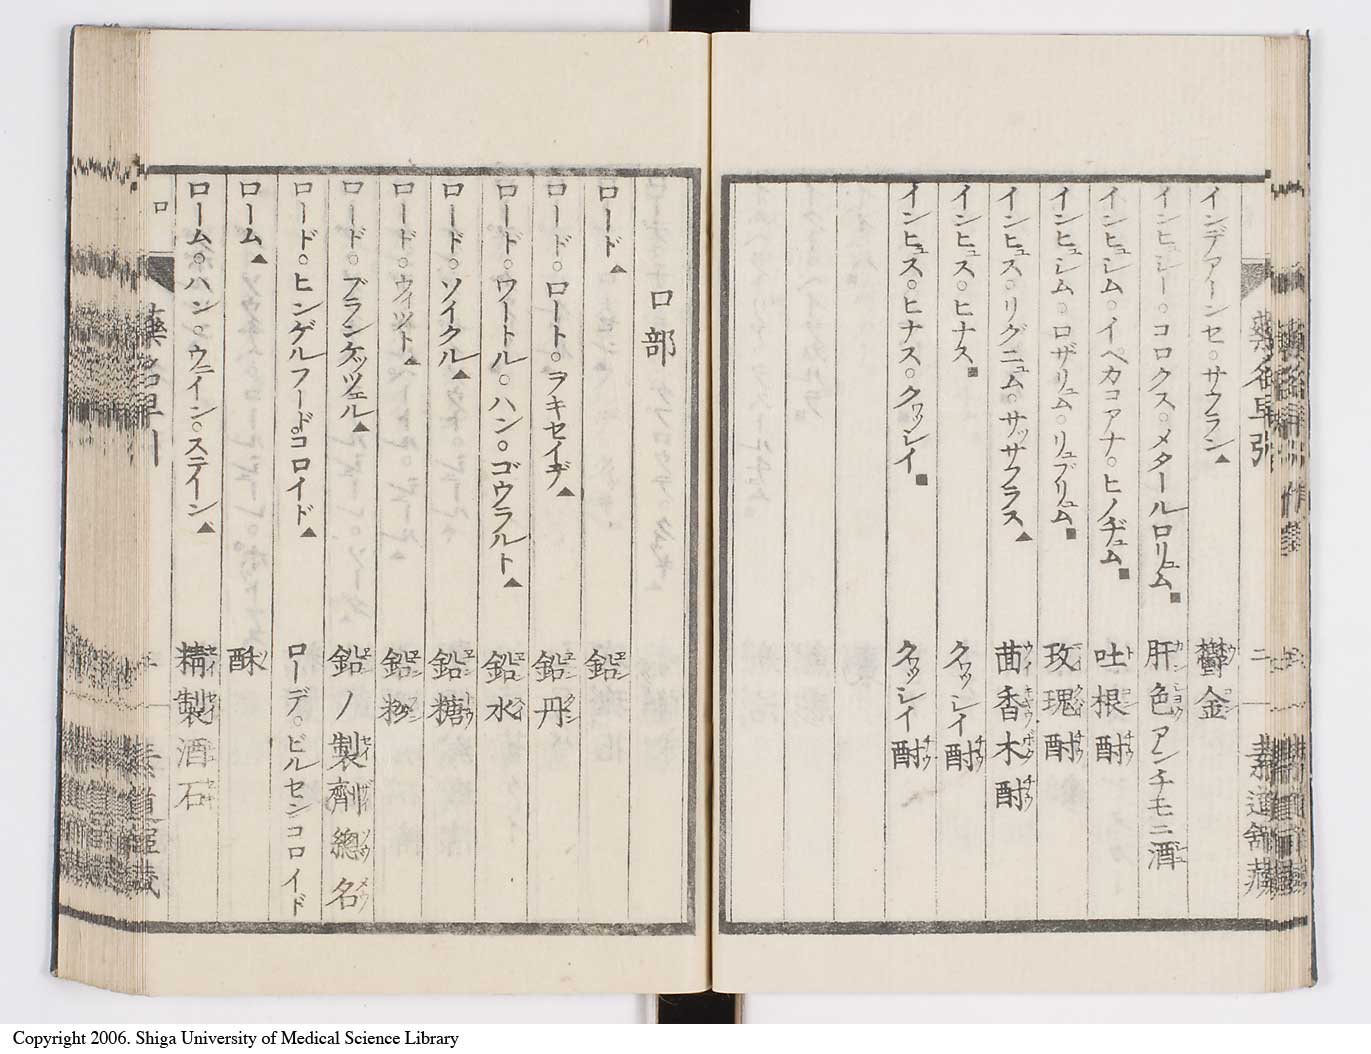 インデアーンセ○サウラン▲ 鬱金
インヒュシー○コロクス○メタールロリュム■ 肝色アンチモニ酒
インヒュシム○イペカコアナ○ヒノヂュム■ 吐根酎
インヒュシム○ロザリュム○リュブリュム■ 玫瑰酎
インヒュス○リグニュム○サッサフラス▲ 茴香木酎
インヒュス○ヒナス■ クワッレイ酎
インヒュス○ヒナス○クワッレイ■ クワッレイ酎
ロ部
ロード▲ 鉛
ロード○ロート○ヲキセイヂ▲ 鉛丹
ロード○ウートル○ハン○ゴウラルト▲ 鉛水
ロード○ソイクル▲ 鉛糖
ロード○ウィット▲ 鉛粉
ロード○プランケッツェル▲ 鉛ノ製劑總名
ロード○ヒンゲルフード○コロイド▲ ローデ○ビルセンコロイド
ローム▲ 酥
ローム○ハン○ウェイン○ステイン▲ 精製酒石
ロ
藥名早引
Copyright 2006. Shiga University of Medical Science Library